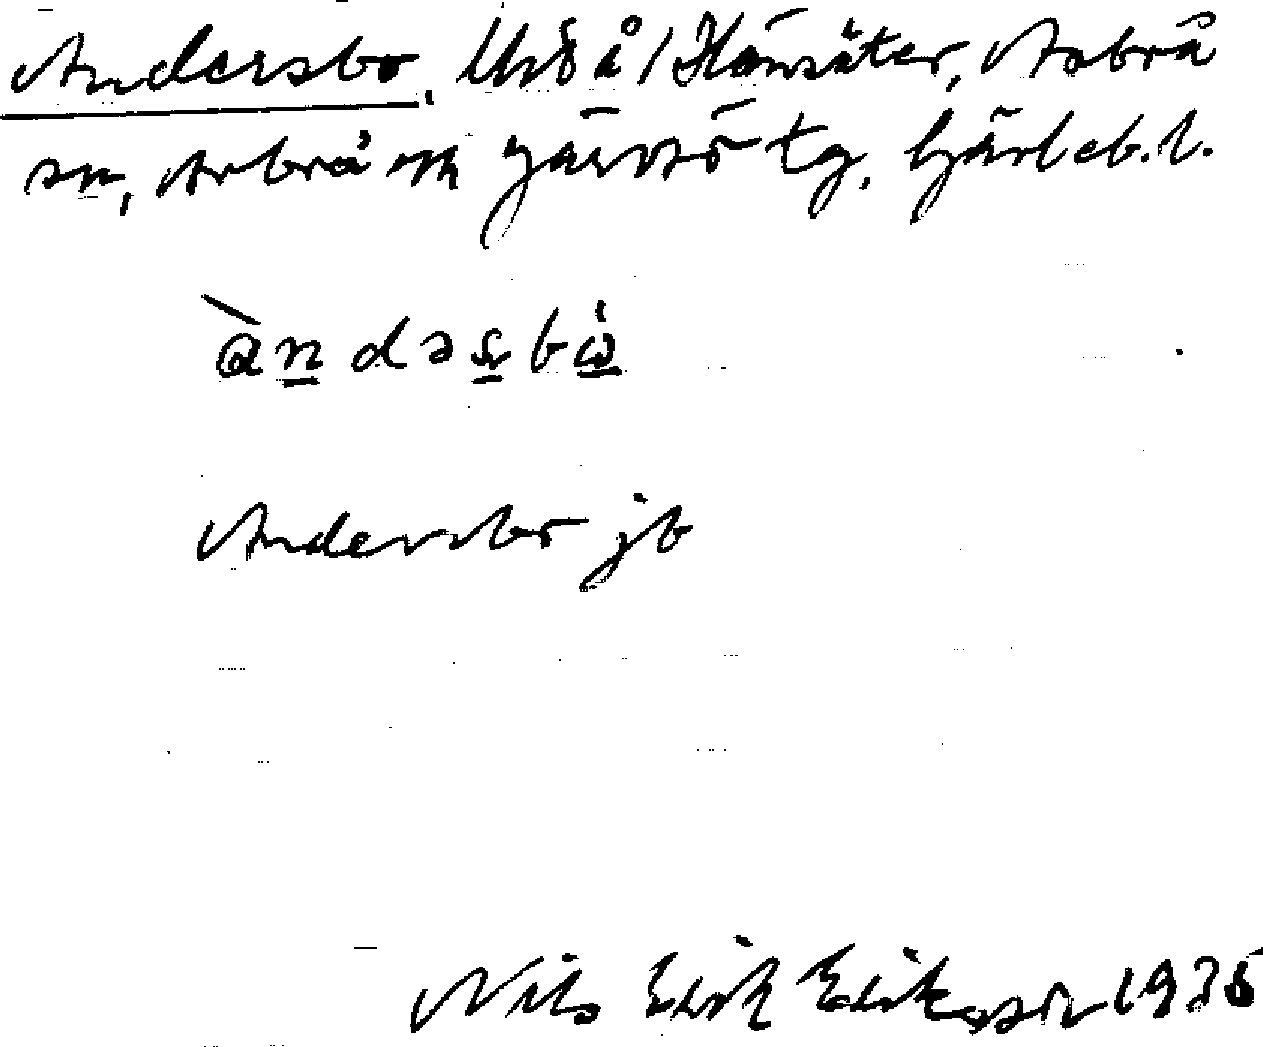 Andersbo, Hänsäter, Arbrå
sn, Arbrå ok Järvsö tg, Gävleb.l.
àndəsbω
Andersbo jb
Nils Erik Eriksson 1935